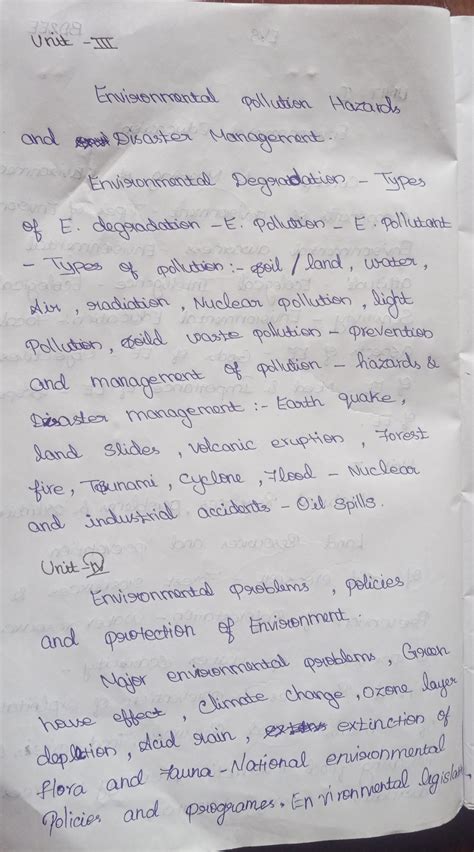 Unit - III
Environmental pollution Hazards
and Disaster Management.
Environmental Degradation - Types
of E. degradation - E. Pollution - E. Pollutant
- Types of pollution :- Soil / land, water,
Air, radiation, Nuclear pollution, light
Pollution, Soild waste pollution - prevention
and management of pollution - hazards &
Disaster management :- Earth quake,
land Slides, volcanic eruption, Forest
fire, Tsunami, Cyclone, Flood - Nuclear
and industrial accidents - Oil Spills.
Unit - IV
Environmental problems, policies
and protection of Environment.
Major environmental problems, Green
house effect, Climate change, Ozone layer
depletion, Acid rain, extinction of
flora and Fauna - National environmental
Policies and programes, Environmental legislation,